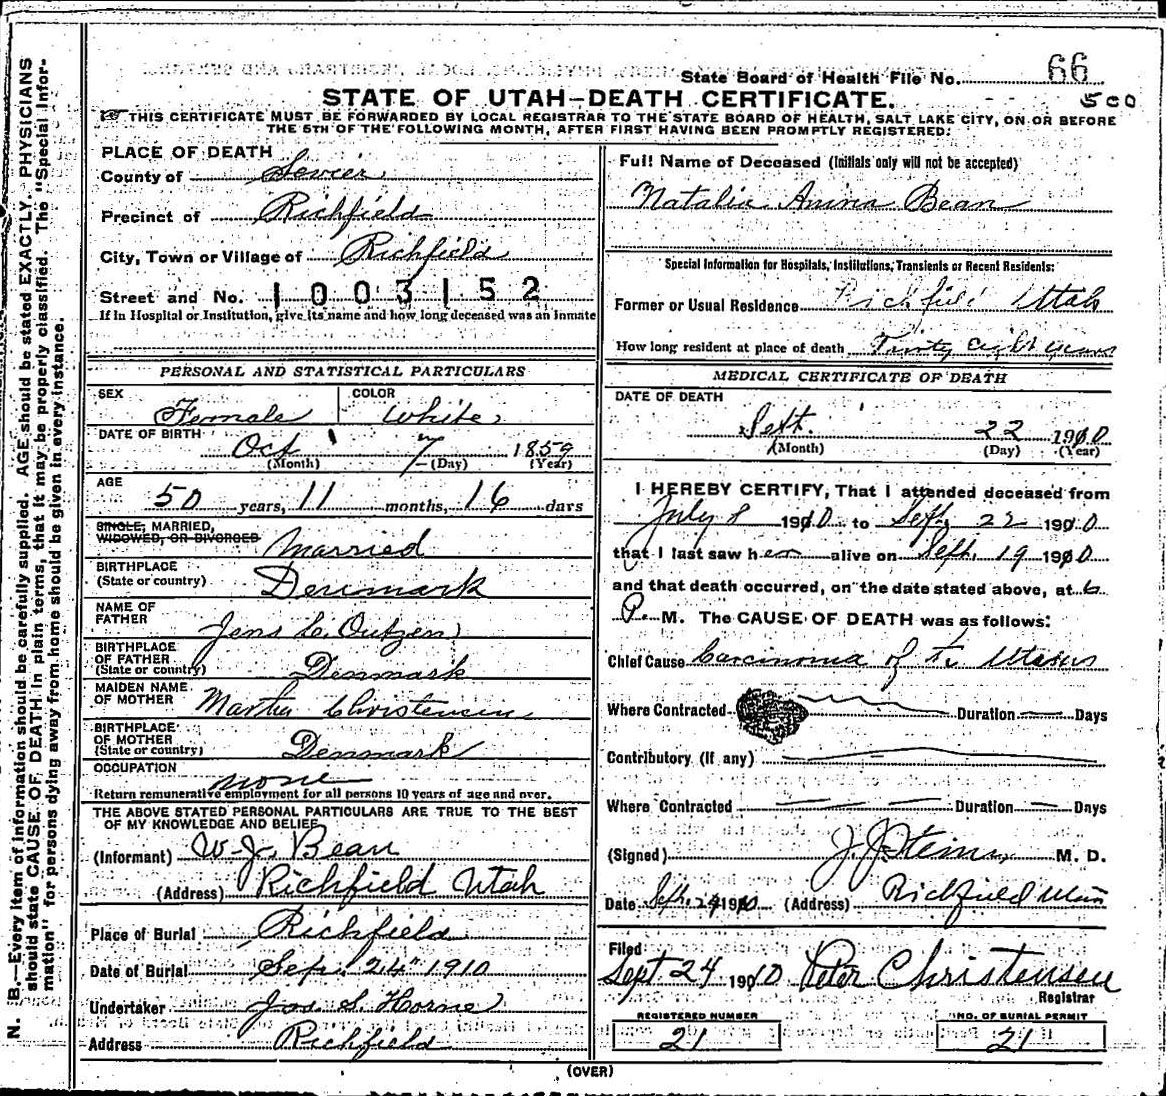 State Board of Health File No. 66
500
STATE OF UTAH—DEATH CERTIFICATE.
THIS CERTIFICATE MUST BE FORWARDED BY LOCAL REGISTRAR TO THE STATE BOARD OF HEALTH, SALT LAKE CITY, ON OR BEFORE
THE 5TH OF THE FOLLOWING MONTH, AFTER FIRST HAVING BEEN PROMPTLY REGISTERED:
N. B.—Every item of information should be carefully supplied. AGE should be stated EXACTLY. PHYSICIANS
should state CAUSE OF DEATH in plain terms, that it may be properly classified. The "Special Infor-
mation" for persons dying away from home should be given in every instance.
PLACE OF DEATH
County of Sevier
Precinct of Richfield
City, Town or Village of Richfield
Street and No. 1003152
If in Hospital or Institution, give its name and how long deceased was an inmate
PERSONAL AND STATISTICAL PARTICULARS
SEX Female COLOR White
DATE OF BIRTH Oct 7 1859
(Month) (Day) (Year)
AGE
50 years, 11 months, 16 days
SINGLE, MARRIED,
WIDOWED, OR DIVORCED Married
BIRTHPLACE
(State or country) Denmark
NAME OF
FATHER Jens C. Outzen
BIRTHPLACE
OF FATHER
(State or country) Denmark
MAIDEN NAME
OF MOTHER Martha Christensen
BIRTHPLACE
OF MOTHER
(State or country) Denmark
OCCUPATION none
Return remunerative employment for all persons 10 years of age and over.
THE ABOVE STATED PERSONAL PARTICULARS ARE TRUE TO THE BEST
OF MY KNOWLEDGE AND BELIEF
(Informant) W. J. Bean
(Address) Richfield Utah
Place of Burial Richfield
Date of Burial Sep. 24" 1910
Undertaker Jos. S. Horne
Address Richfield
Full Name of Deceased (Initials only will not be accepted)
Natalia Anina Bean
Special Information for Hospitals, Institutions, Transients or Recent Residents:
Former or Usual Residence Richfield Utah
How long resident at place of death Thirty eight years
MEDICAL CERTIFICATE OF DEATH
DATE OF DEATH
Sept. 22 1910
(Month) (Day) (Year)
I HEREBY CERTIFY, That I attended deceased from
July 8 1910 to Sept. 22 1910
that I last saw her alive on Sept. 19 1910
and that death occurred, on the date stated above, at 6
P. M. The CAUSE OF DEATH was as follows:
Chief Cause Carcinoma of the Uterus
Where Contracted Duration Days
Contributory (if any)
Where Contracted Duration Days
(Signed) J. J. Steiner M. D.
Date Sept. 24 1910 (Address) Richfield Utah
Filed
Sept 24 1910 Peter Christensen
Registrar
REGISTERED NUMBER
21
NO. OF BURIAL PERMIT
21
(OVER)